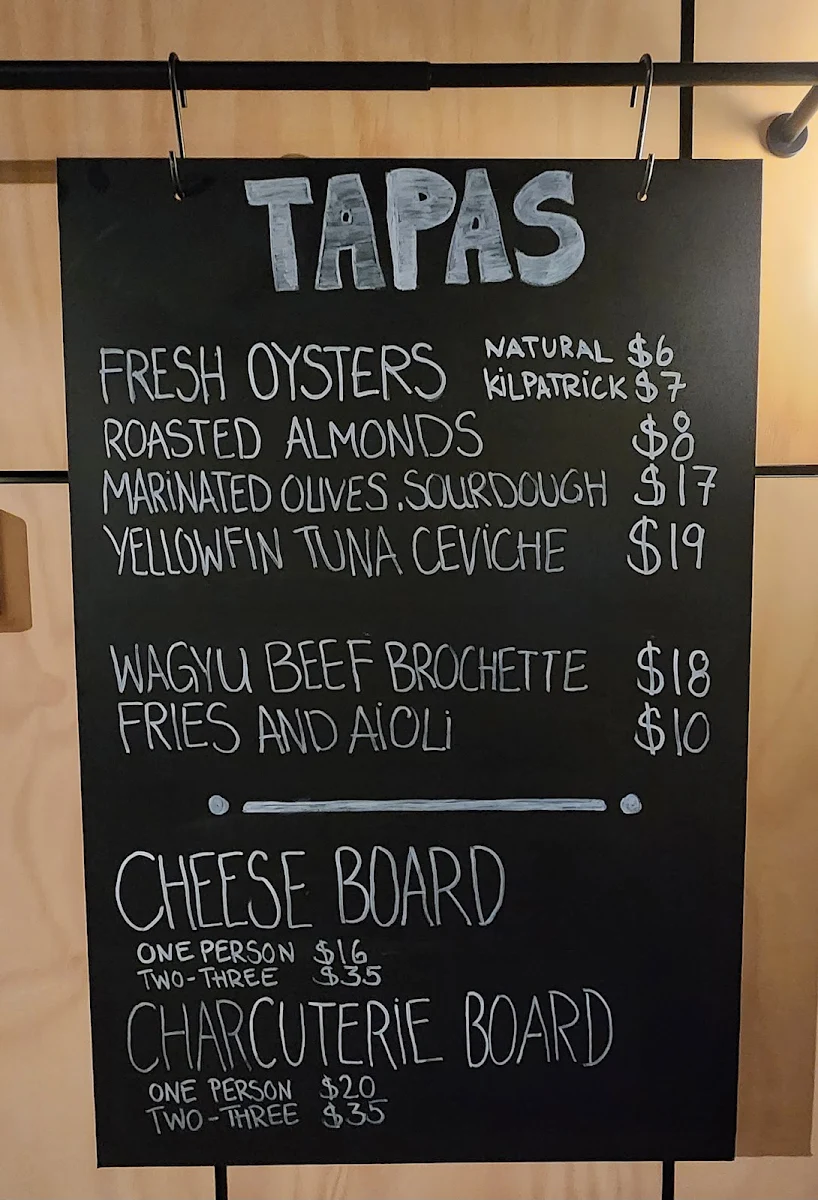 TAPAS
FRESH OYSTERS NATURAL $6
KILPATRICK $7
ROASTED ALMONDS $8
MARINATED OLIVES, SOURDOUGH $17
YELLOWFIN TUNA CEVICHE $19
WAGYU BEEF BROCHETTE $18
FRIES AND AIOLI $10
CHEESE BOARD
ONE PERSON $16
TWO-THREE $35
CHARCUTERIE BOARD
ONE PERSON $20
TWO-THREE $35